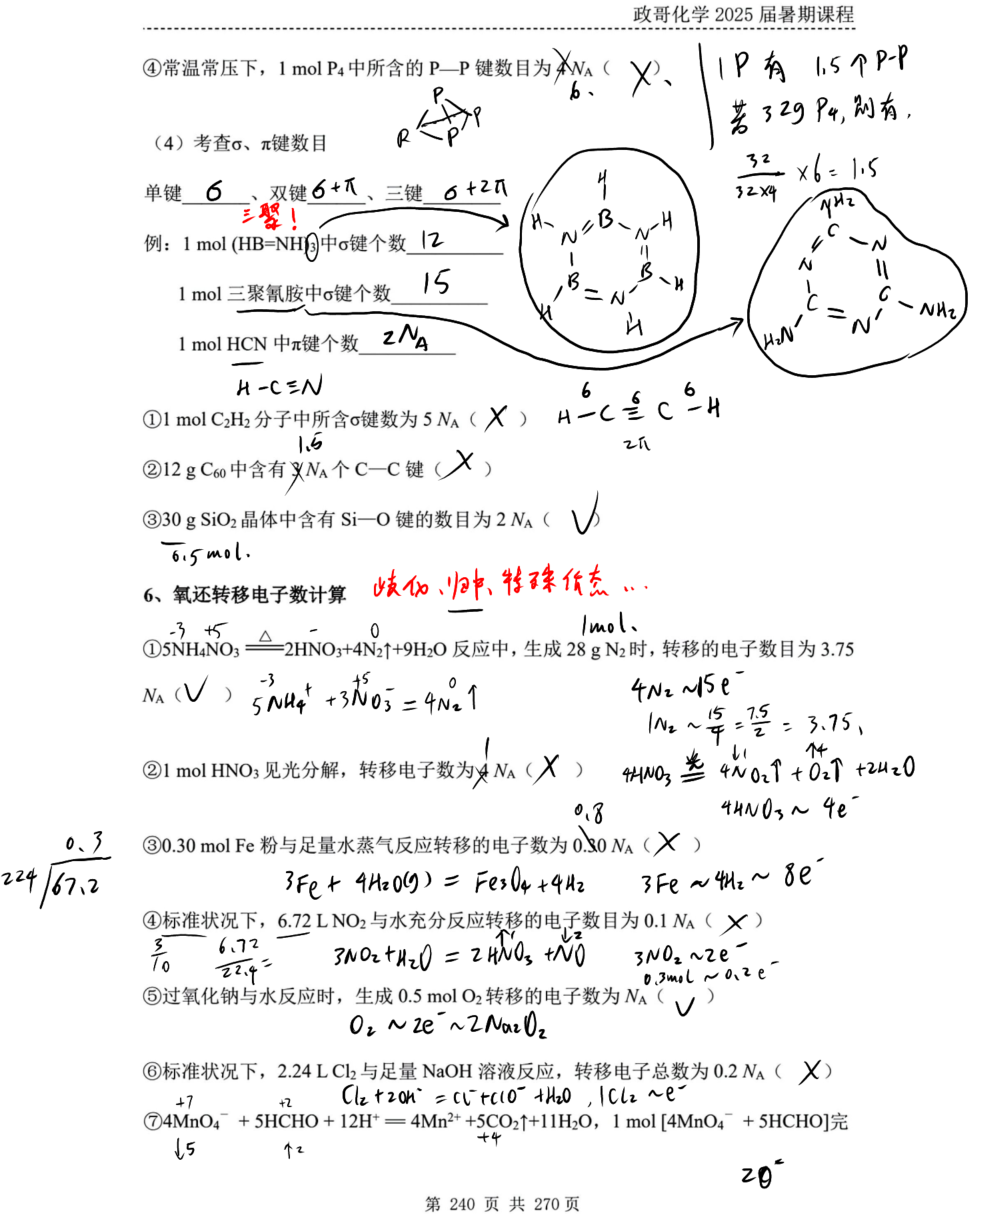 政哥化学 2025 届暑期课程
④常温常压下，1 mol P₄ 中所含的 P—P 键数目为 4 Nᴀ（ X ）、
6、
1P 有 1.5个 P-P
若 32g P₄, 则有,
32/32×4 ×6 = 1.5
P
R P P
（4）考查σ、π键数目
单键 6 、双键 6+π 、三键 6+2π
三聚！
例：1 mol (HB=NH)₃ 中σ键个数 12
1 mol 三聚氰胺中σ键个数 15
1 mol HCN 中π键个数 2Nᴀ
H-C≡N
H
H N B N H
B B
H N H
H
NH₂
C
N N
C C
H₂N N NH₂
①1 mol C₂H₂ 分子中所含σ键数为 5 Nᴀ（ X ）
6 6 6
H-C≡C-H
2π
1.5
②12 g C₆₀ 中含有 3 Nᴀ 个 C—C 键（ X ）
③30 g SiO₂ 晶体中含有 Si—O 键的数目为 2 Nᴀ（ √ ）
0.5mol.
6、氧还转移电子数计算 歧化、归中、特殊价态...
-3 +5 - 0 1mol.
①5NH₄NO₃ =△= 2HNO₃+4N₂↑+9H₂O 反应中，生成 28 g N₂ 时，转移的电子数目为 3.75
Nᴀ（ √ ）
-3 +5 0
5NH₄⁺ +3NO₃⁻ = 4N₂↑
4N₂ ~15e⁻
1N₂ ~ 15/4 = 7.5/2 = 3.75、
1
②1 mol HNO₃ 见光分解，转移电子数为 4 Nᴀ（ X ）
↓1 ↑4
4HNO₃ =光= 4NO₂↑ +O₂↑ +2H₂O
4HNO₃ ~ 4e⁻
0.8
③0.30 mol Fe 粉与足量水蒸气反应转移的电子数为 0.30 Nᴀ（ X ）
0.3
224 67.2
3Fe + 4H₂O(g) = Fe₃O₄ +4H₂ 3Fe ~ 4H₂ ~ 8e⁻
④标准状况下，6.72 L NO₂ 与水充分反应转移的电子数目为 0.1 Nᴀ（ X ）
3/10 6.72/22.4=
↑1 ↓2
3NO₂+H₂O = 2HNO₃ +NO 3NO₂ ~2e⁻
0.3mol ~0.2e⁻
⑤过氧化钠与水反应时，生成 0.5 mol O₂ 转移的电子数为 Nᴀ（ √ ）
O₂ ~ 2e⁻ ~2Na₂O₂
⑥标准状况下，2.24 L Cl₂ 与足量 NaOH 溶液反应，转移电子总数为 0.2 Nᴀ（ X ）
Cl₂ +2OH⁻ = Cl⁻+ClO⁻ +H₂O , 1Cl₂ ~e⁻
+7 +2
⑦4MnO₄⁻ + 5HCHO + 12H⁺ = 4Mn²⁺ +5CO₂↑+11H₂O，1 mol [4MnO₄⁻ + 5HCHO]完
↓5 ↑2 +4
20⁻
第 240 页 共 270 页